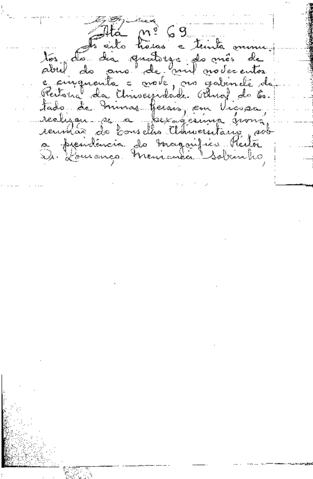 Ata nº 69
As oito horas e trinta minu-
tos do dia quatorze do mês de
abril do ano de mil novecentos
e cinquenta e nove, no gabinete da
Reitoria da Universidade Rural do Es-
tado de Minas Gerais, em Viçosa
realizou-se a sexagésima nona
reunião do Conselho Universitário, sob
a presidência do Magnífico Reitor
Dr. Lourenço Menicucci Sobrinho,